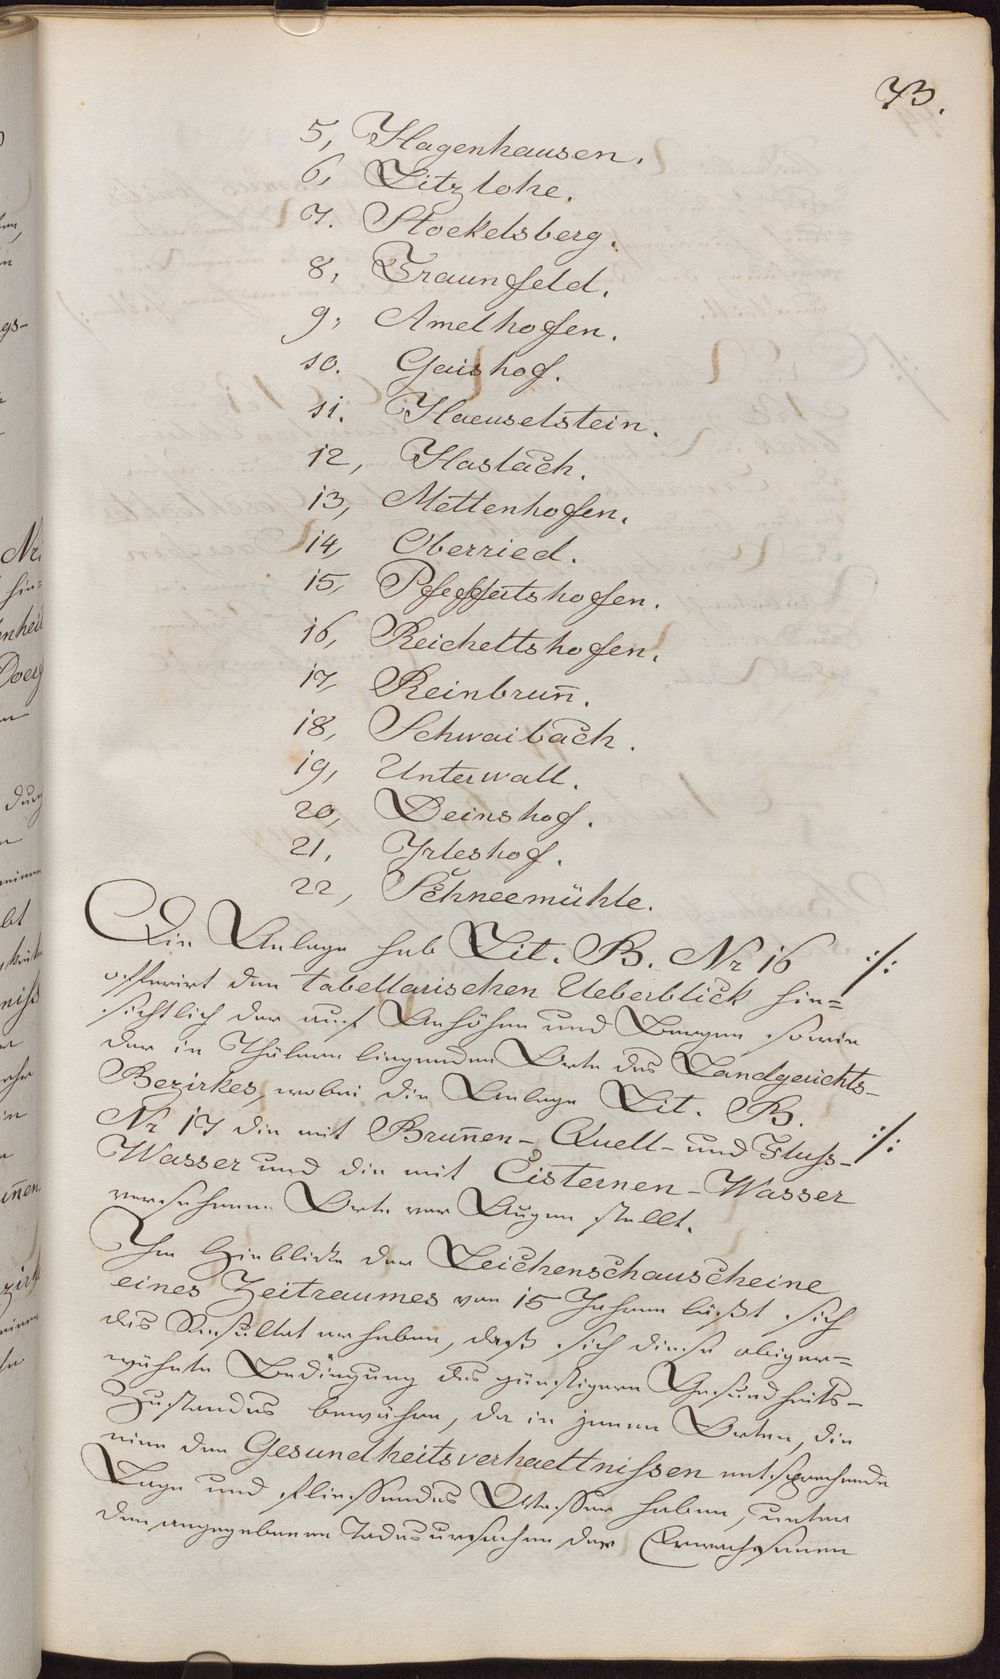 73.
5, Hagenhausen.
6, Litzlohe.
7. Stoekelsberg.
8, Traunfeld.
9, Amelhofen.
10. Gaishof.
11. Haeuselstein.
12, Haslach.
13, Mettenhofen.
14, Oberried.
15, Pfeffertshofen.
16, Reicheltshofen.
17, Reinbrun̄.
18, Schwaibach.
19, Unterwall.
20, Deinshof.
21, Irleshof.
22, Schneemühle.
Die Anlage sub Lit. B. Nr 16 ./.
offerirt den tabellarischen Ueberblick hin=
sichtlich der auf Anhöhen und Bergen sowie
der in Thälern liegenden Orte des Landgerichts-
Bezirkes, wobei die Anlage Lit. B.
Nr 17 die mit Brun̄en- Quell- und Fluss- ./.
Wasser und die mit Cisternen-Wasser
versehenen Orte vor Augen stellt.
Im Hinblicke der Leichenschauscheine
eines Zeitraumes von 15 Jahren läßt sich
das Resultat erheben, daß sich diese obiger=
wähnte Bedingung des günstigern Gesundheits-
Zustandes bewähre, da in jenen Orten, die
eine den Gesundheitsverhaeltnissen entsprechende
Lage und fliessendes Wasser haben, unter
den angegebenen Todesursachen der Erwachsenen